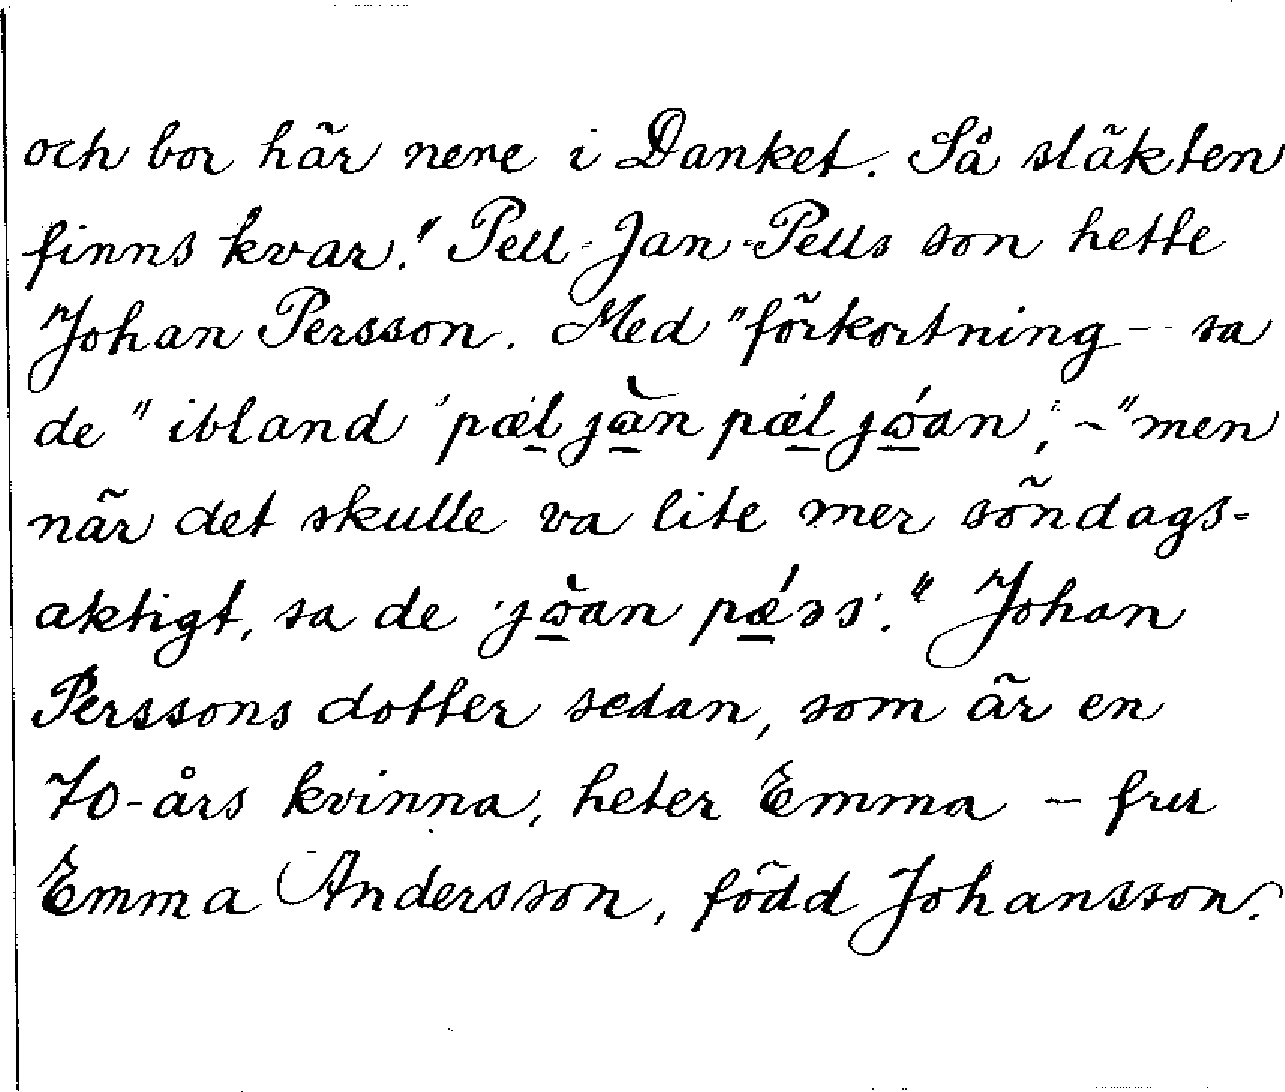 och bor här nere i Danket. Så släkten
finns kvar." Pell-Jan-Pells son hette
Johan Persson. Med "förkortning – sa
de" ibland 'pæl jàn pæl jóan', – "men
när det skulle va lite mer söndags-
aktigt, sa de 'jòan pǽss'." Johan
Perssons dotter sedan, som är en
70-års kvinna, heter Emma – fru
Emma Andersson, född Johansson.